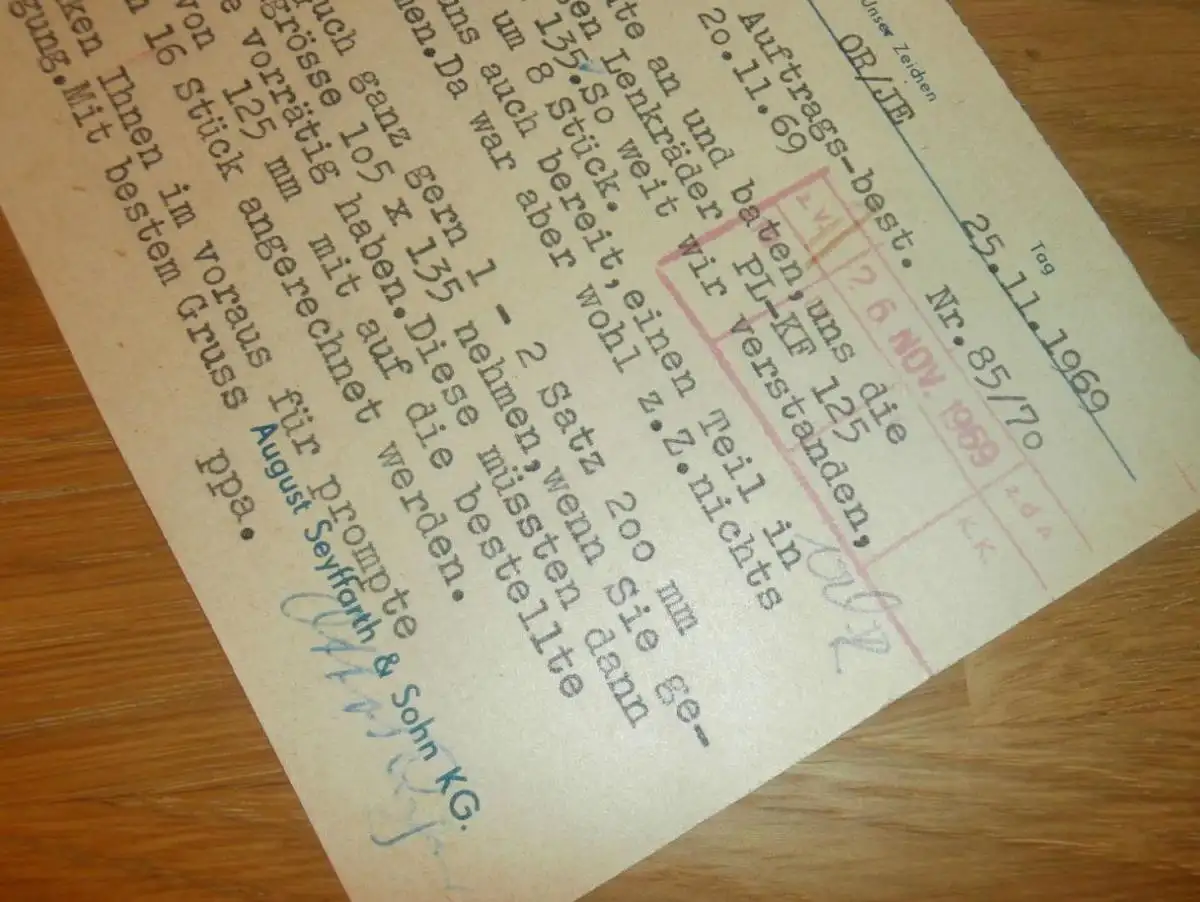 Unser Zeichen
Tag
OR/JE
25.11.1969
Auftrags-best. Nr.85/70
20.11.69
26. NOV. 1969
an und baten,uns die
Lenkräder PL-KF 125
135.So weit wir verstanden,
um 8 Stück.
uns auch bereit,einen Teil in
Da war aber wohl z.Z.nichts
auch ganz gern 1 - 2 Satz 200 mm
grösse 105 x 135 nehmen,wenn Sie ge-
vorrätig haben.Diese müssten dann
von 125 mm mit auf die bestellte
16 Stück angerechnet werden.
Ihnen im voraus für prompte
Mit bestem Gruss ppa.
August Seyffarth & Sohn KG.